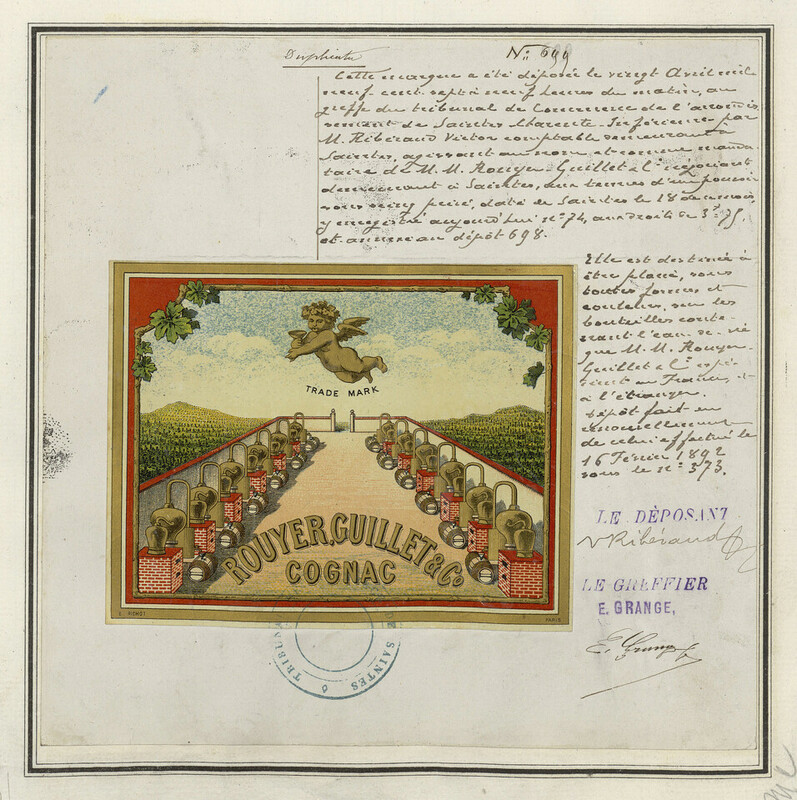 Duplicata
N: 699
Cette marque a été déposée le vingt Avril mil
neuf cent sept à neuf heures du matin, au
greffe du tribunal de Commerce de l'arrondis
sement de Saintes Charente-Inférieure par
M. Ribéraud Victor comptable demeurant à
Saintes, agissant au nom et comme manda
taire de M.M. Rouyer Guillet & Cie négociant
demeurant à Saintes, aux termes d'un pouvoir
sous seing privé, daté de Saintes le 18 de ce mois,
y enregistré aujourd'hui no 74, aux droits de 3f 75,
et annexé au dépôt 698.
Elle est destinée à
être placée, sous
toutes formes et
couleurs, sur les
bouteilles conte-
nant l'eau-de-vie
que M.M. Rouyer
Guillet & Cie expé-
dient en France et
à l'étranger.
Dépôt fait en
renouvellement
de celui effectué le
16 Février 1892
sous le no 373.
TRADE MARK
ROUYER, GUILLET & Co
COGNAC
PARIS
LE DÉPOSANT
V Ribéraud
LE GREFFIER
E. GRANGE,
E. Grange
TRIBUNAL DE SAINTES